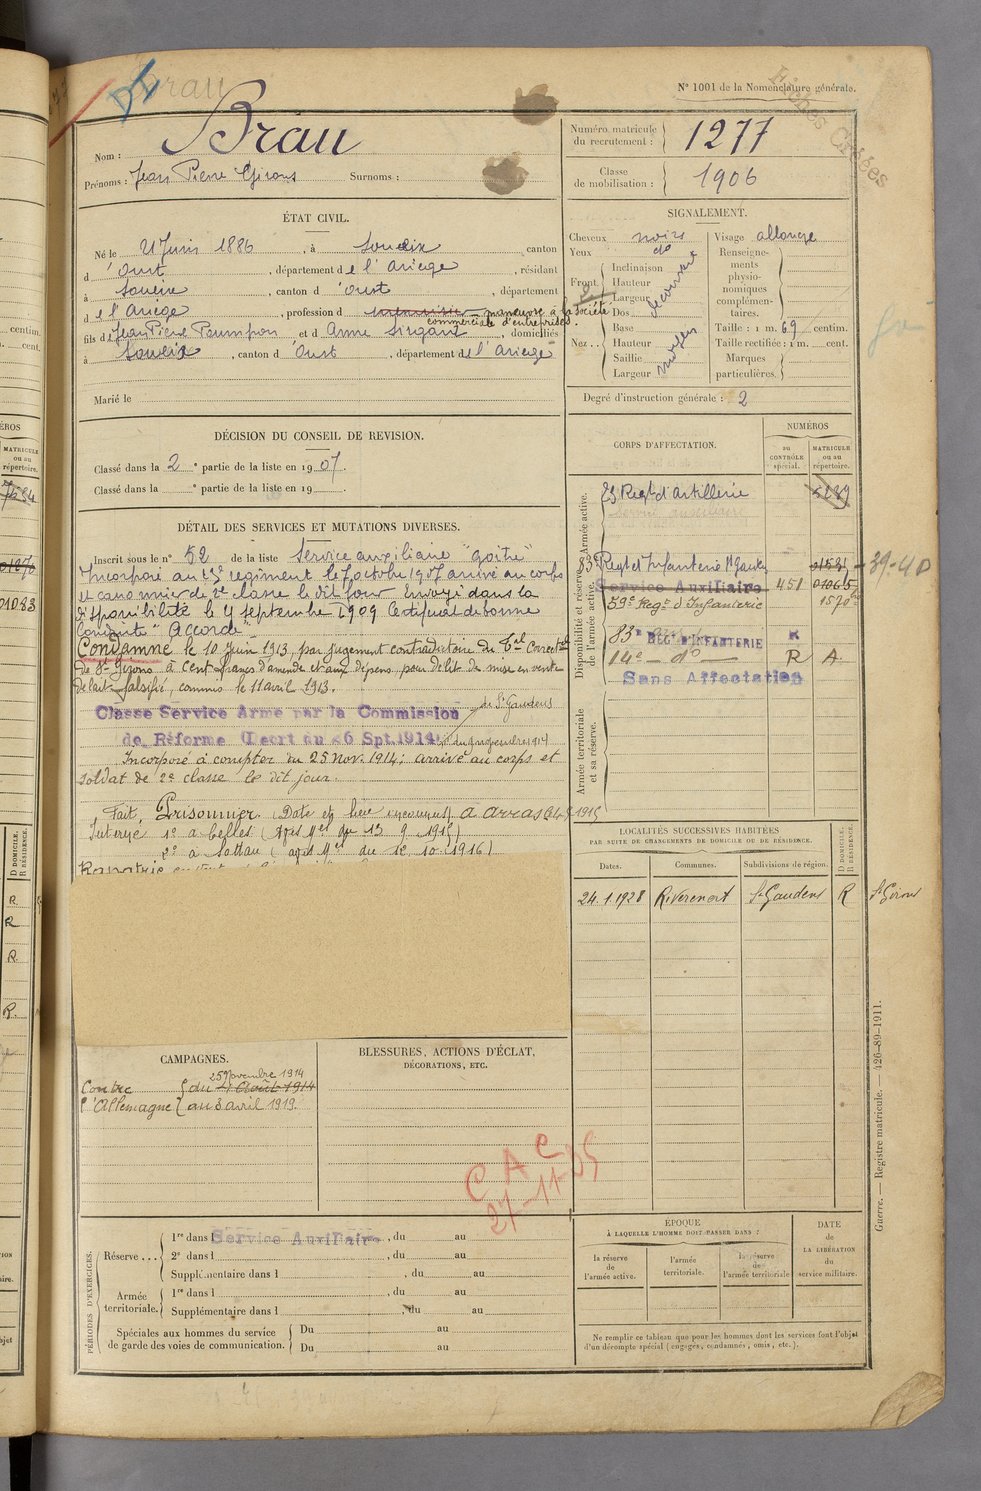 Brau
N° 1001 de la Nomenclature générale.
Fiches Créées
Nom : Brau
Prénoms : Jean Pierre Girons Surnoms :
Numéro matricule du recrutement : 1277
Classe de mobilisation : 1906
ÉTAT CIVIL.
Né le 21 Juin 1886, à Soueix, canton
d'Oust, département de l'Ariège, résidant
à Soueix, canton d'Oust, département
de l'Ariège, profession de manœuvre à la société
commerciale d'entreprises.
fils de Jean Pierre Paumpon et d Anne Sirgant, domiciliés
à Soueix, canton d'Oust, département de l'Ariège
Marié le
SIGNALEMENT.
Cheveux noirs
Yeux do
Front Inclinaison
Hauteur
Largeur
découvert
Nez Dos
Base
Hauteur
Saillie
Largeur
moyen
Visage allongé
Renseignements physionomiques complémentaires.
Taille : 1 m. 69 centim.
Taille rectifiée : 1 m. cent.
Marques particulières.
Degré d'instruction générale : 2
DÉCISION DU CONSEIL DE REVISION.
Classé dans la 2e partie de la liste en 1907.
Classé dans la e partie de la liste en 19
DÉTAIL DES SERVICES ET MUTATIONS DIVERSES.
Inscrit sous le n° 52 de la liste Service auxiliaire "goître"
Incorporé au 23e régiment le 7 octobre 1907 arrivé au corps
et canonnier de 2e classe le dit jour Envoyé dans la
disponibilité le 4 septembre 1909 Certificat de bonne
Conduite "Accordé"
Condamné le 10 juin 1913, par jugement contradictoire du Tal Correctel
de St Girons à Cent francs d'amende et aux dépens pour délit de mise en vente
de lait falsifié, commis le 11 avril 1913.
Classé Service Armé par la Commission de St Gaudens
de Réforme (Décret du 26 Spt. 1914) du 9 novembre 1914
Incorporé à compter du 25 Nov. 1914; arrivé au corps et
soldat de 2e classe le dit jour.
Fait Prisonnier (Date et lieu inconnus) à Arras
Interné 1° à Celles (Avis du 13 9 1915)
2° à Soltau (avis du 12 10 1916)
Rapatrié
CORPS D'AFFECTATION.
NUMÉROS
au CONTRÔLE spécial.
MATRICULE ou au répertoire.
Armée active.
23 Regt d'artillerie
Disponibilité et réserve de l'armée active.
83e Regt d'Infanterie St Gaudens
Service Auxiliaire 451
59e Regt d'Infanterie
83e REG. D'INFANTERIE
14e — do — R A
Sans Affectation
Armée territoriale et sa réserve.
LOCALITÉS SUCCESSIVES HABITÉES
PAR SUITE DE CHANGEMENTS DE DOMICILE OU DE RÉSIDENCE.
Dates. Communes. Subdivisions de région. D DOMICILE. R RÉSIDENCE.
24.1.1928 Riverenert St Gaudens R St Girons
CAMPAGNES.
25 Novembre 1914
Contre du 4 Août 1914
l'Allemagne au 3 avril 1919.
BLESSURES, ACTIONS D'ÉCLAT,
DÉCORATIONS, ETC.
C A C
27-11-35
PÉRIODES D'EXERCICES.
Réserve ... 1re dans l Service Auxiliaire, du au
2e dans l , du au
Supplémentaire dans l , du au
Armée territoriale. 1re dans l , du au
Supplémentaire dans l , du au
Spéciales aux hommes du service de garde des voies de communication. Du au
Du au
ÉPOQUE
À LAQUELLE L'HOMME DOIT PASSER DANS :
la réserve de l'armée active.
l'armée territoriale.
la réserve de l'armée territoriale
DATE de LA LIBÉRATION du service militaire.
Ne remplir ce tableau que pour les hommes dont les services font l'objet
d'un décompte spécial (engagés, condamnés, omis, etc.).
Guerre. — Registre matricule. — 426-89-1911.